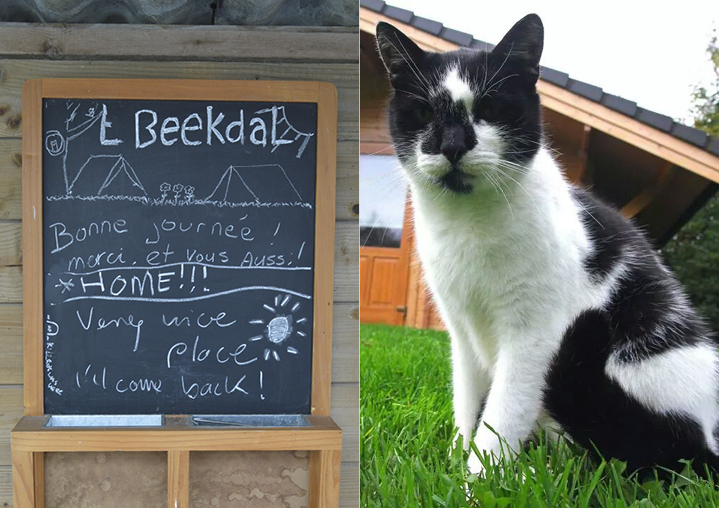 t Beekdal
Bonne journeé !
merci, et vous aussi!
* HOME!!!
Very nice
place
I'll come back!